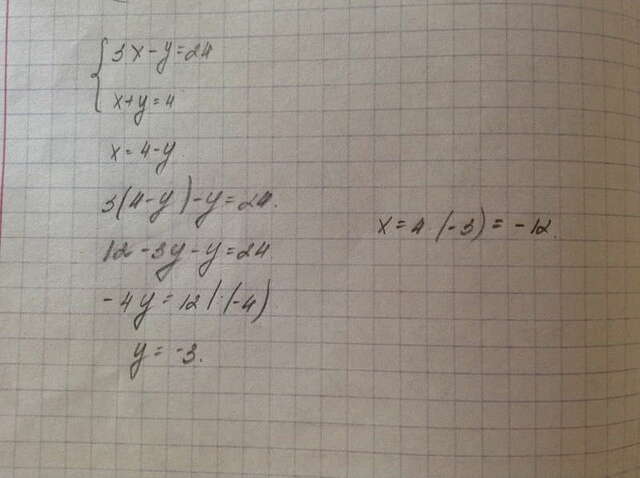 3x-y=24
x+y=4
x=4-y
3(4-y)-y=24.
12-3y-y=24
-4y=12|:(-4)
y=-3.
x=4(-3)=-12.